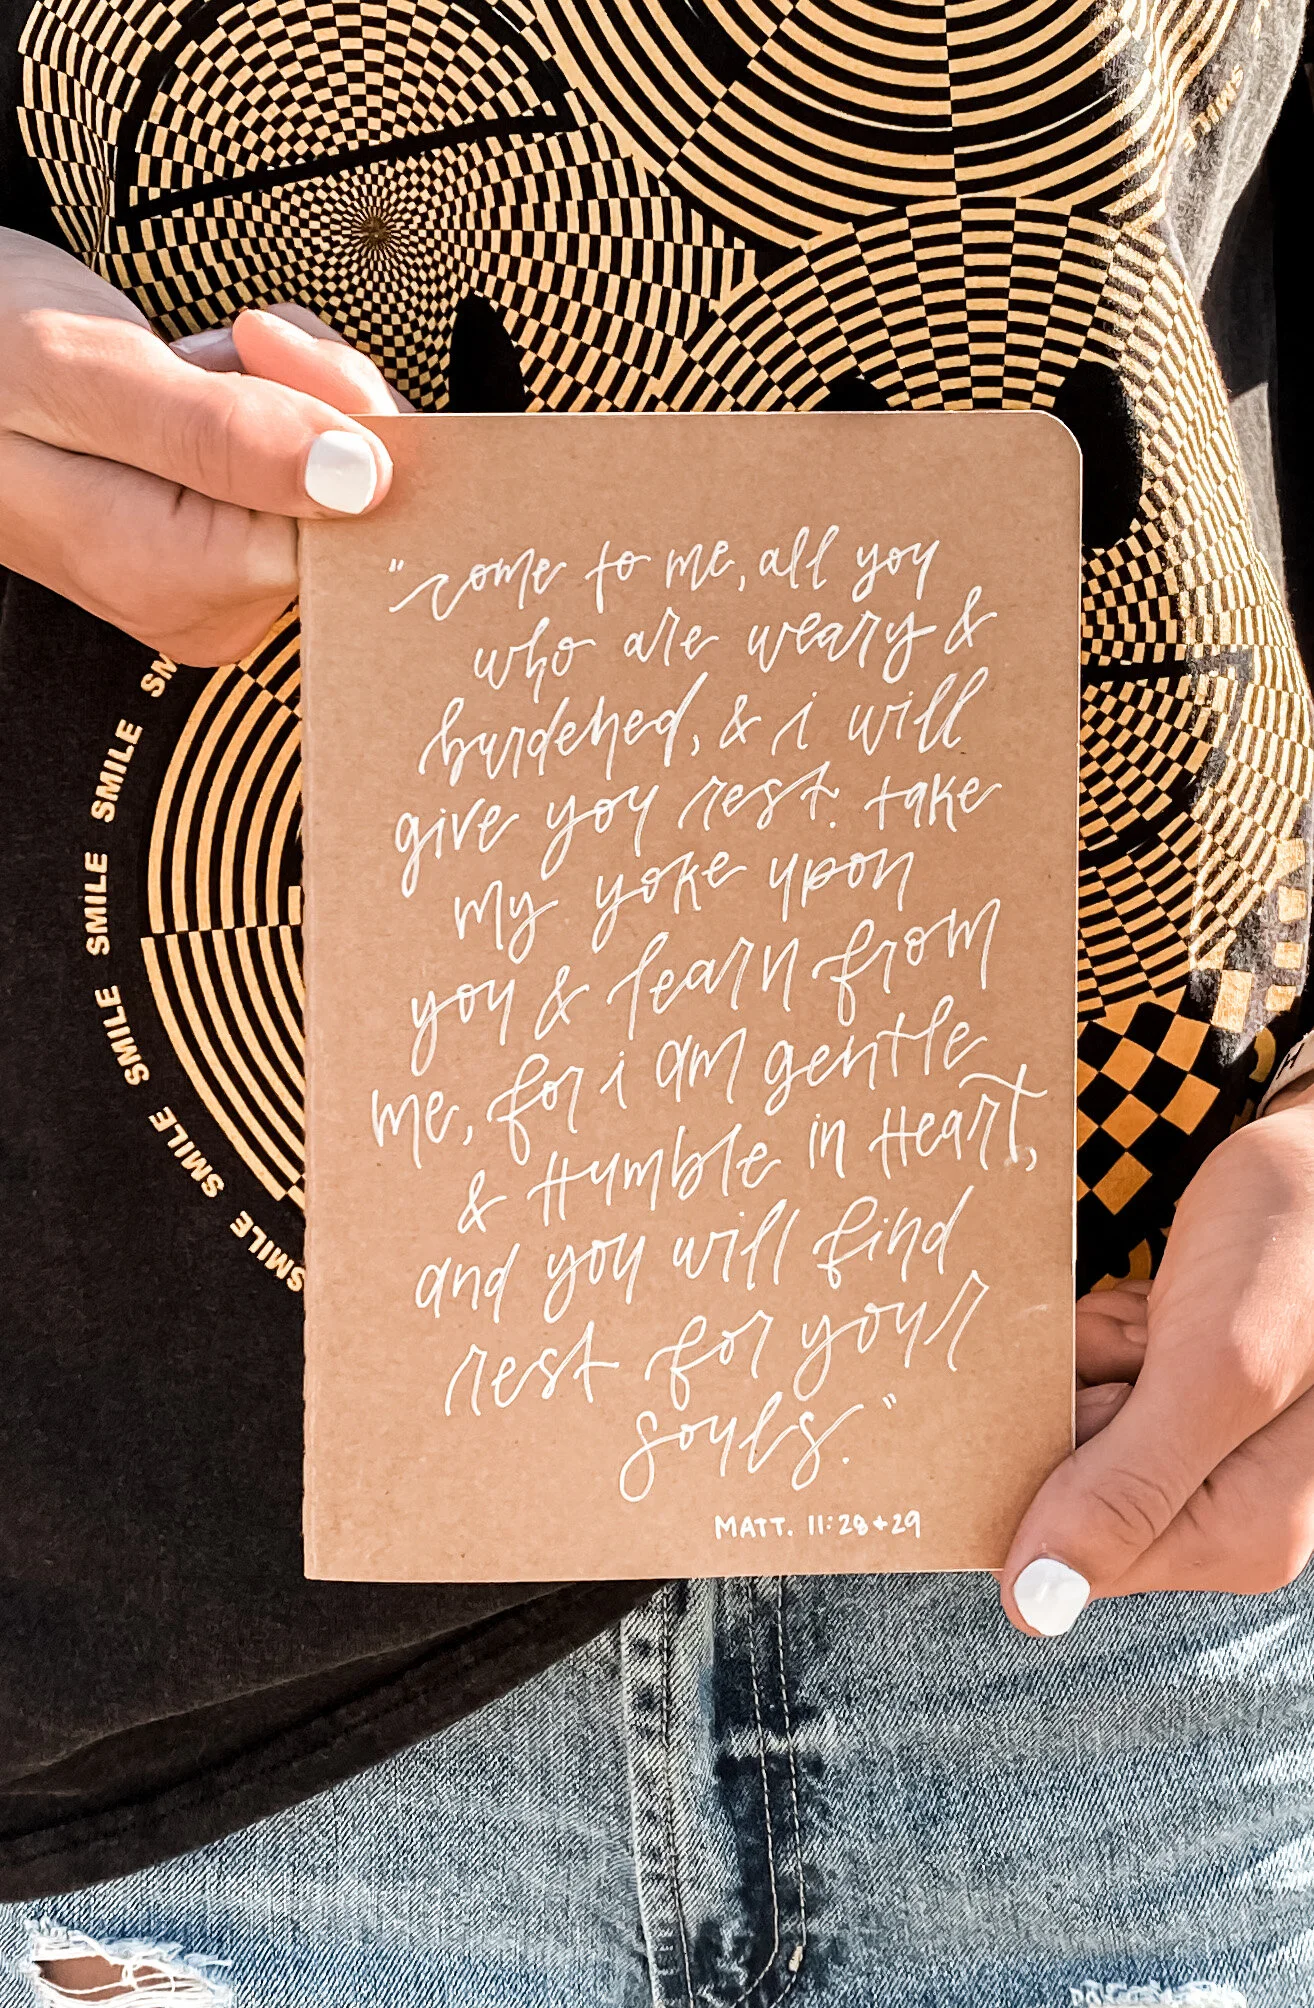 "come to me, all you
who are weary &
burdened, & i will
give you rest. take
my yoke upon
you & learn from
me, for i am gentle
& humble in heart,
and you will find
rest for your
souls."
MATT. 11:28+29
SMILE
SMILE
SMILE
SMILE
SMILE
SMILE
SMILE